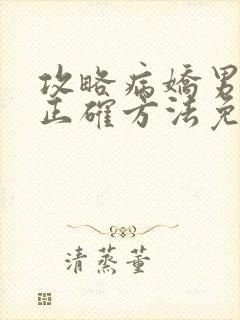 攻略病嬌男
正確方法免
清蒸董